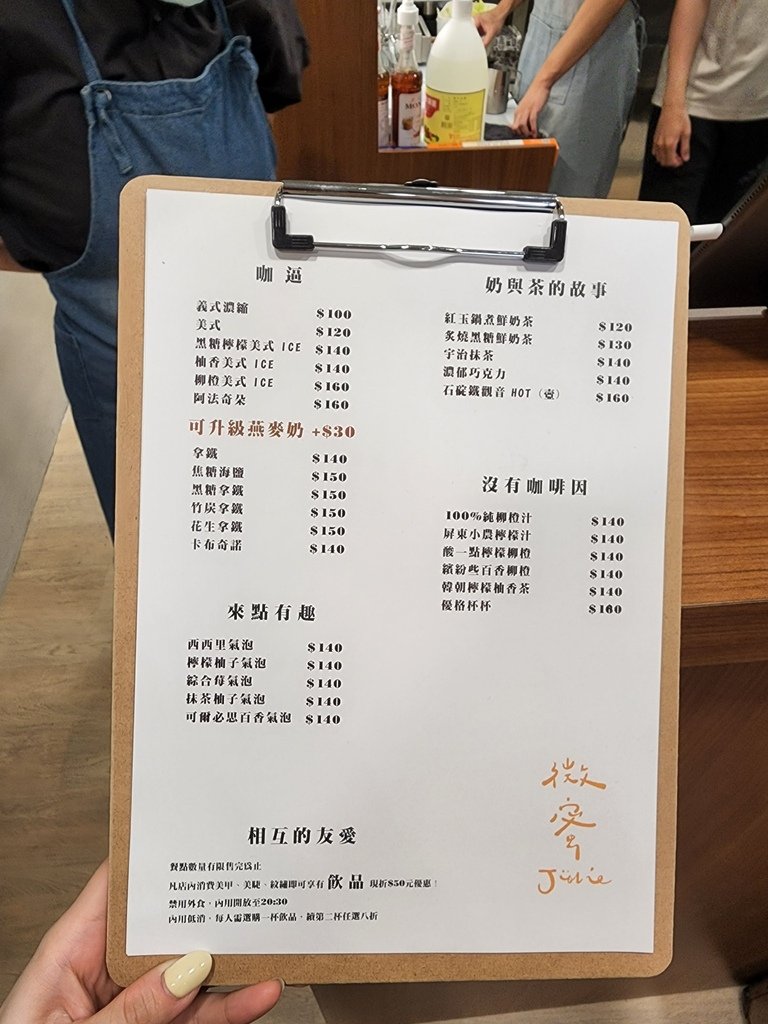 咖逼
義式濃縮 $100
美式 $120
黑糖檸檬美式 ICE $140
柚香美式 ICE $140
柳橙美式 ICE $160
阿法奇朵 $160
可升級燕麥奶 +$30
拿鐵 $140
焦糖海鹽 $150
黑糖拿鐵 $150
竹炭拿鐵 $150
花生拿鐵 $150
卡布奇諾 $140
來點有趣
西西里氣泡 $140
檸檬柚子氣泡 $140
綜合莓氣泡 $140
抹茶柚子氣泡 $140
可爾必思百香氣泡 $140
奶與茶的故事
紅玉鍋煮鮮奶茶 $120
炙燒黑糖鮮奶茶 $130
宇治抹茶 $140
濃郁巧克力 $140
石碇鐵觀音 HOT (壺) $160
沒有咖啡因
100%純柳橙汁 $140
屏東小農檸檬汁 $140
酸一點檸檬柳橙 $140
繽紛些百香柳橙 $140
韓朝檸檬柚香茶 $140
優格杯杯 $160
相互的友愛
餐點數量有限售完為止
凡店內消費美甲、美睫、紋繡即可享有 飲品 現折$50元優惠!
禁用外食,內用開放至20:30
內用低消,每人需選購一杯飲品,續第二杯任選八折